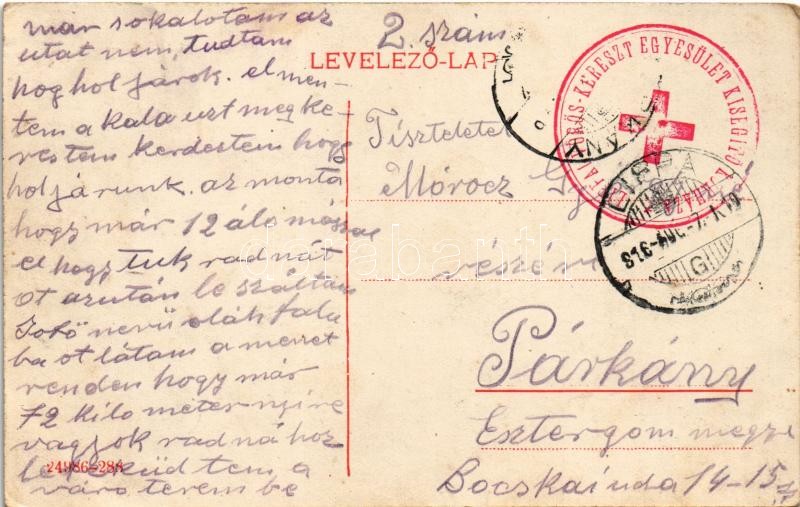 már sokalotam az
utat nem tudtam
hog hol járok. elmen-
tem a kala uzt megke
restem kerdestem hogy
hol járunk. az monta
hogy már 12 álo mással
el hogy tuk rad nát
ot azután le száltam
nevü oláh falu
ba ot látam a
renden hogy már
72 kilo méter nyire
vagyok rad ná hoz
küd tem a
váro terem be
24986-288
2. szám
LEVELEZŐ-LAP
VÖRÖS-KERESZT EGYESÜLET KISEGÍTŐ
Tisztelet
Mórocz
részére
Párkány
Esztergom megye
Bocskai uda 14-15
darabanth